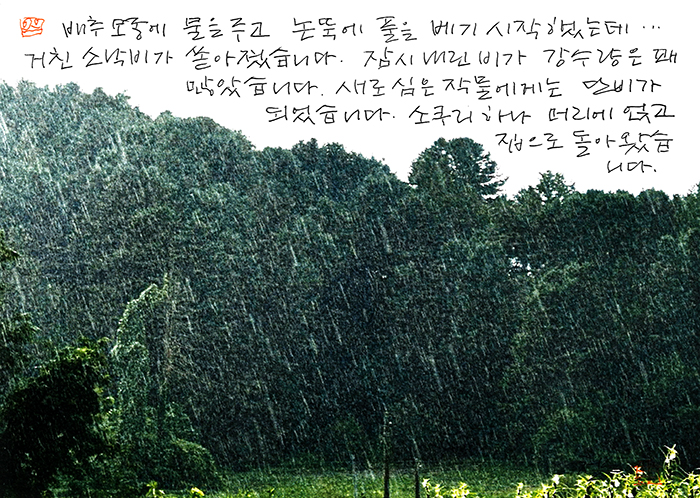 배추 모종에 물을 주고 논뚝에 풀을 베기 시작했는데 ...
거친 소낙비가 쏟아졌습니다. 잠시 내린 비가 강수량은 꽤
많았습니다. 새로 심은 작물에게는 단비가
되었습니다. 소쿠리 하나 머리에 얹고
집으로 돌아왔습
니다.